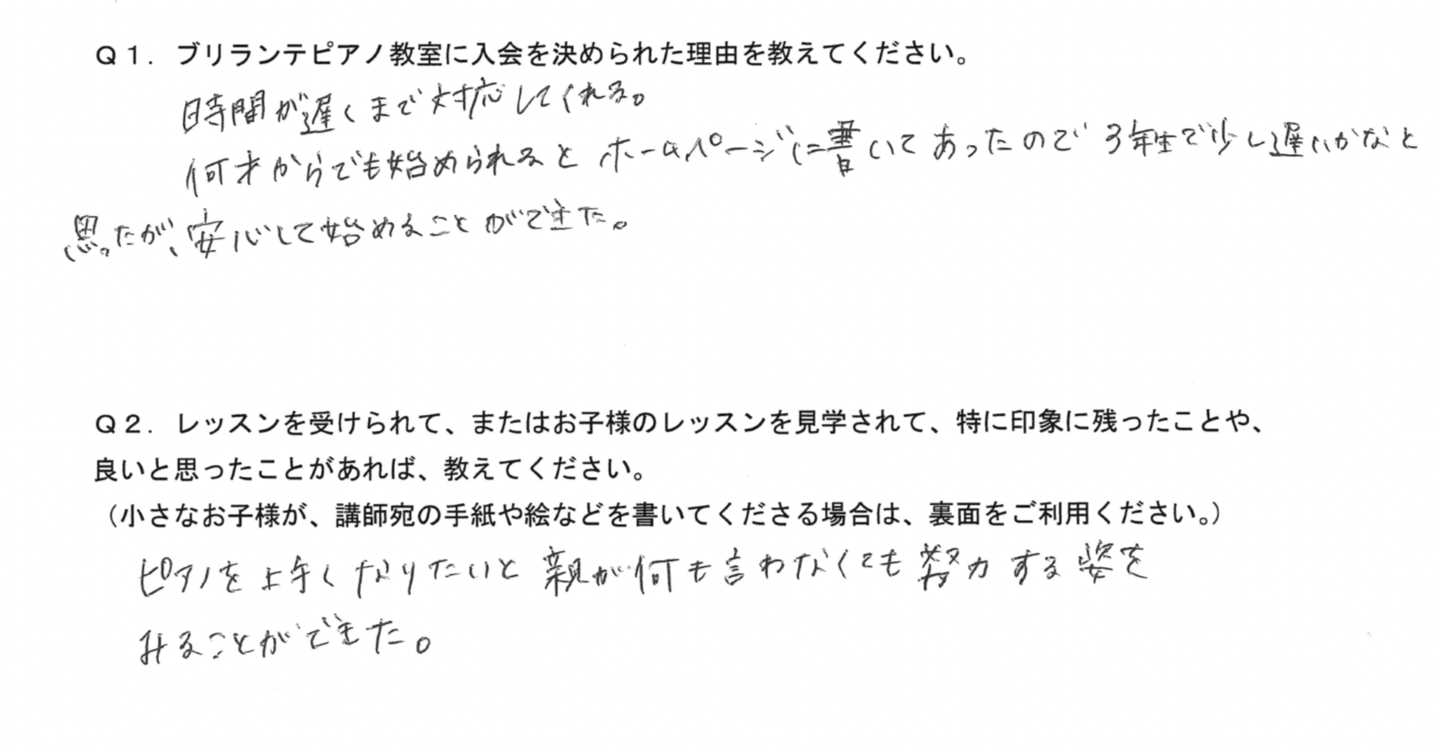 Q1．ブリランテピアノ教室に入会を決められた理由を教えてください。
時間が遅くまで対応してくれる。
何才からでも始められるとホームページに書いてあったので3年生で少し遅いかなと
思ったが、安心して始めることができた。
Q2．レッスンを受けられて、またはお子様のレッスンを見学されて、特に印象に残ったことや、
良いと思ったことがあれば、教えてください。
（小さなお子様が、講師宛の手紙や絵などを書いてくださる場合は、裏面をご利用ください。）
ピアノを上手くなりたいと親が何も言わなくても努力する姿を
みることができた。